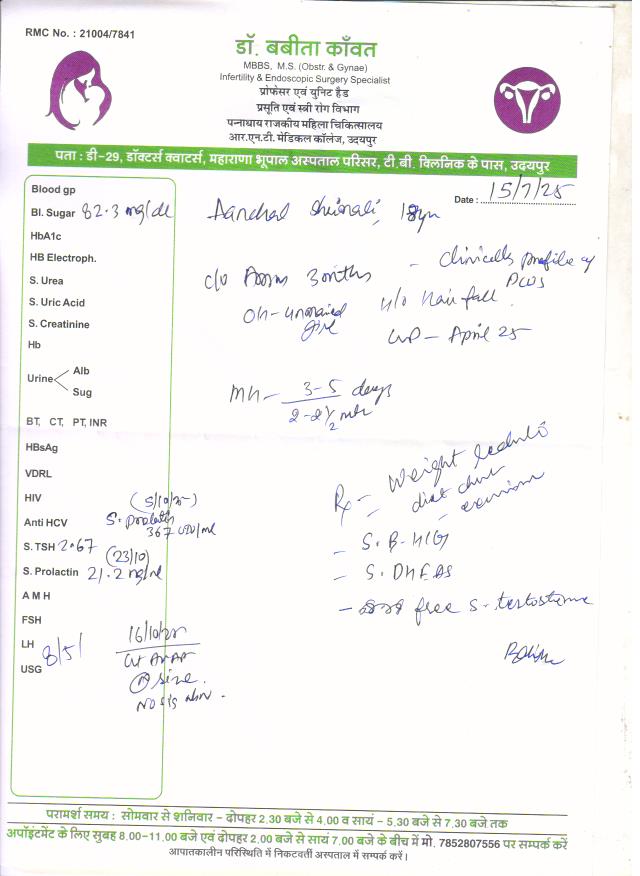 RMC No. : 21004/7841
डॉ. बबीता काँवत
MBBS, M.S. (Obstr. & Gynae)
Infertility & Endoscopic Surgery Specialist
प्रोफेसर एवं युनिट हैड
प्रसूति एवं स्त्री रोग विभाग
पन्नाधाय राजकीय महिला चिकित्सालय
आर.एन.टी. मेडिकल कॉलेज, उदयपुर
पता : डी-29, डॉक्टर्स क्वाटर्स, महाराणा भूपाल अस्पताल परिसर, टी.बी. क्लिनिक के पास, उदयपुर
Date : 15/7/25
Blood gp
Bl. Sugar 82.3 mg/dl
HbA1c
HB Electroph.
S. Urea
S. Uric Acid
S. Creatinine
Hb
Urine Alb
Sug
BT, CT, PT, INR
HBsAg
VDRL
HIV
Anti HCV
S. TSH 2.67
(23/10)
S. Prolactin 21.2 ng/ml
A M H
FSH
LH
USG
8/5/
16/10/25
size.
Aanchal 18yr
c/o 3 months - clinically profile of PCOS
O/H - unmarried girl
H/o hair fall
LMP - April 25
MH - 3-5 days
Rx - Weight
diet chart
- S. B-HCG
- S. DHEAS
- free S. testosterone
परामर्श समय : सोमवार से शनिवार - दोपहर 2.30 बजे से 4.00 व सायं - 5.30 बजे से 7.30 बजे तक
अपॉइंटमेंट के लिए सुबह 8.00-11.00 बजे एवं दोपहर 2.00 बजे से सायं 7.00 बजे के बीच में मो. 7852807556 पर सम्पर्क करें
आपातकालीन परिस्थिति में निकटवर्ती अस्पताल में सम्पर्क करें।